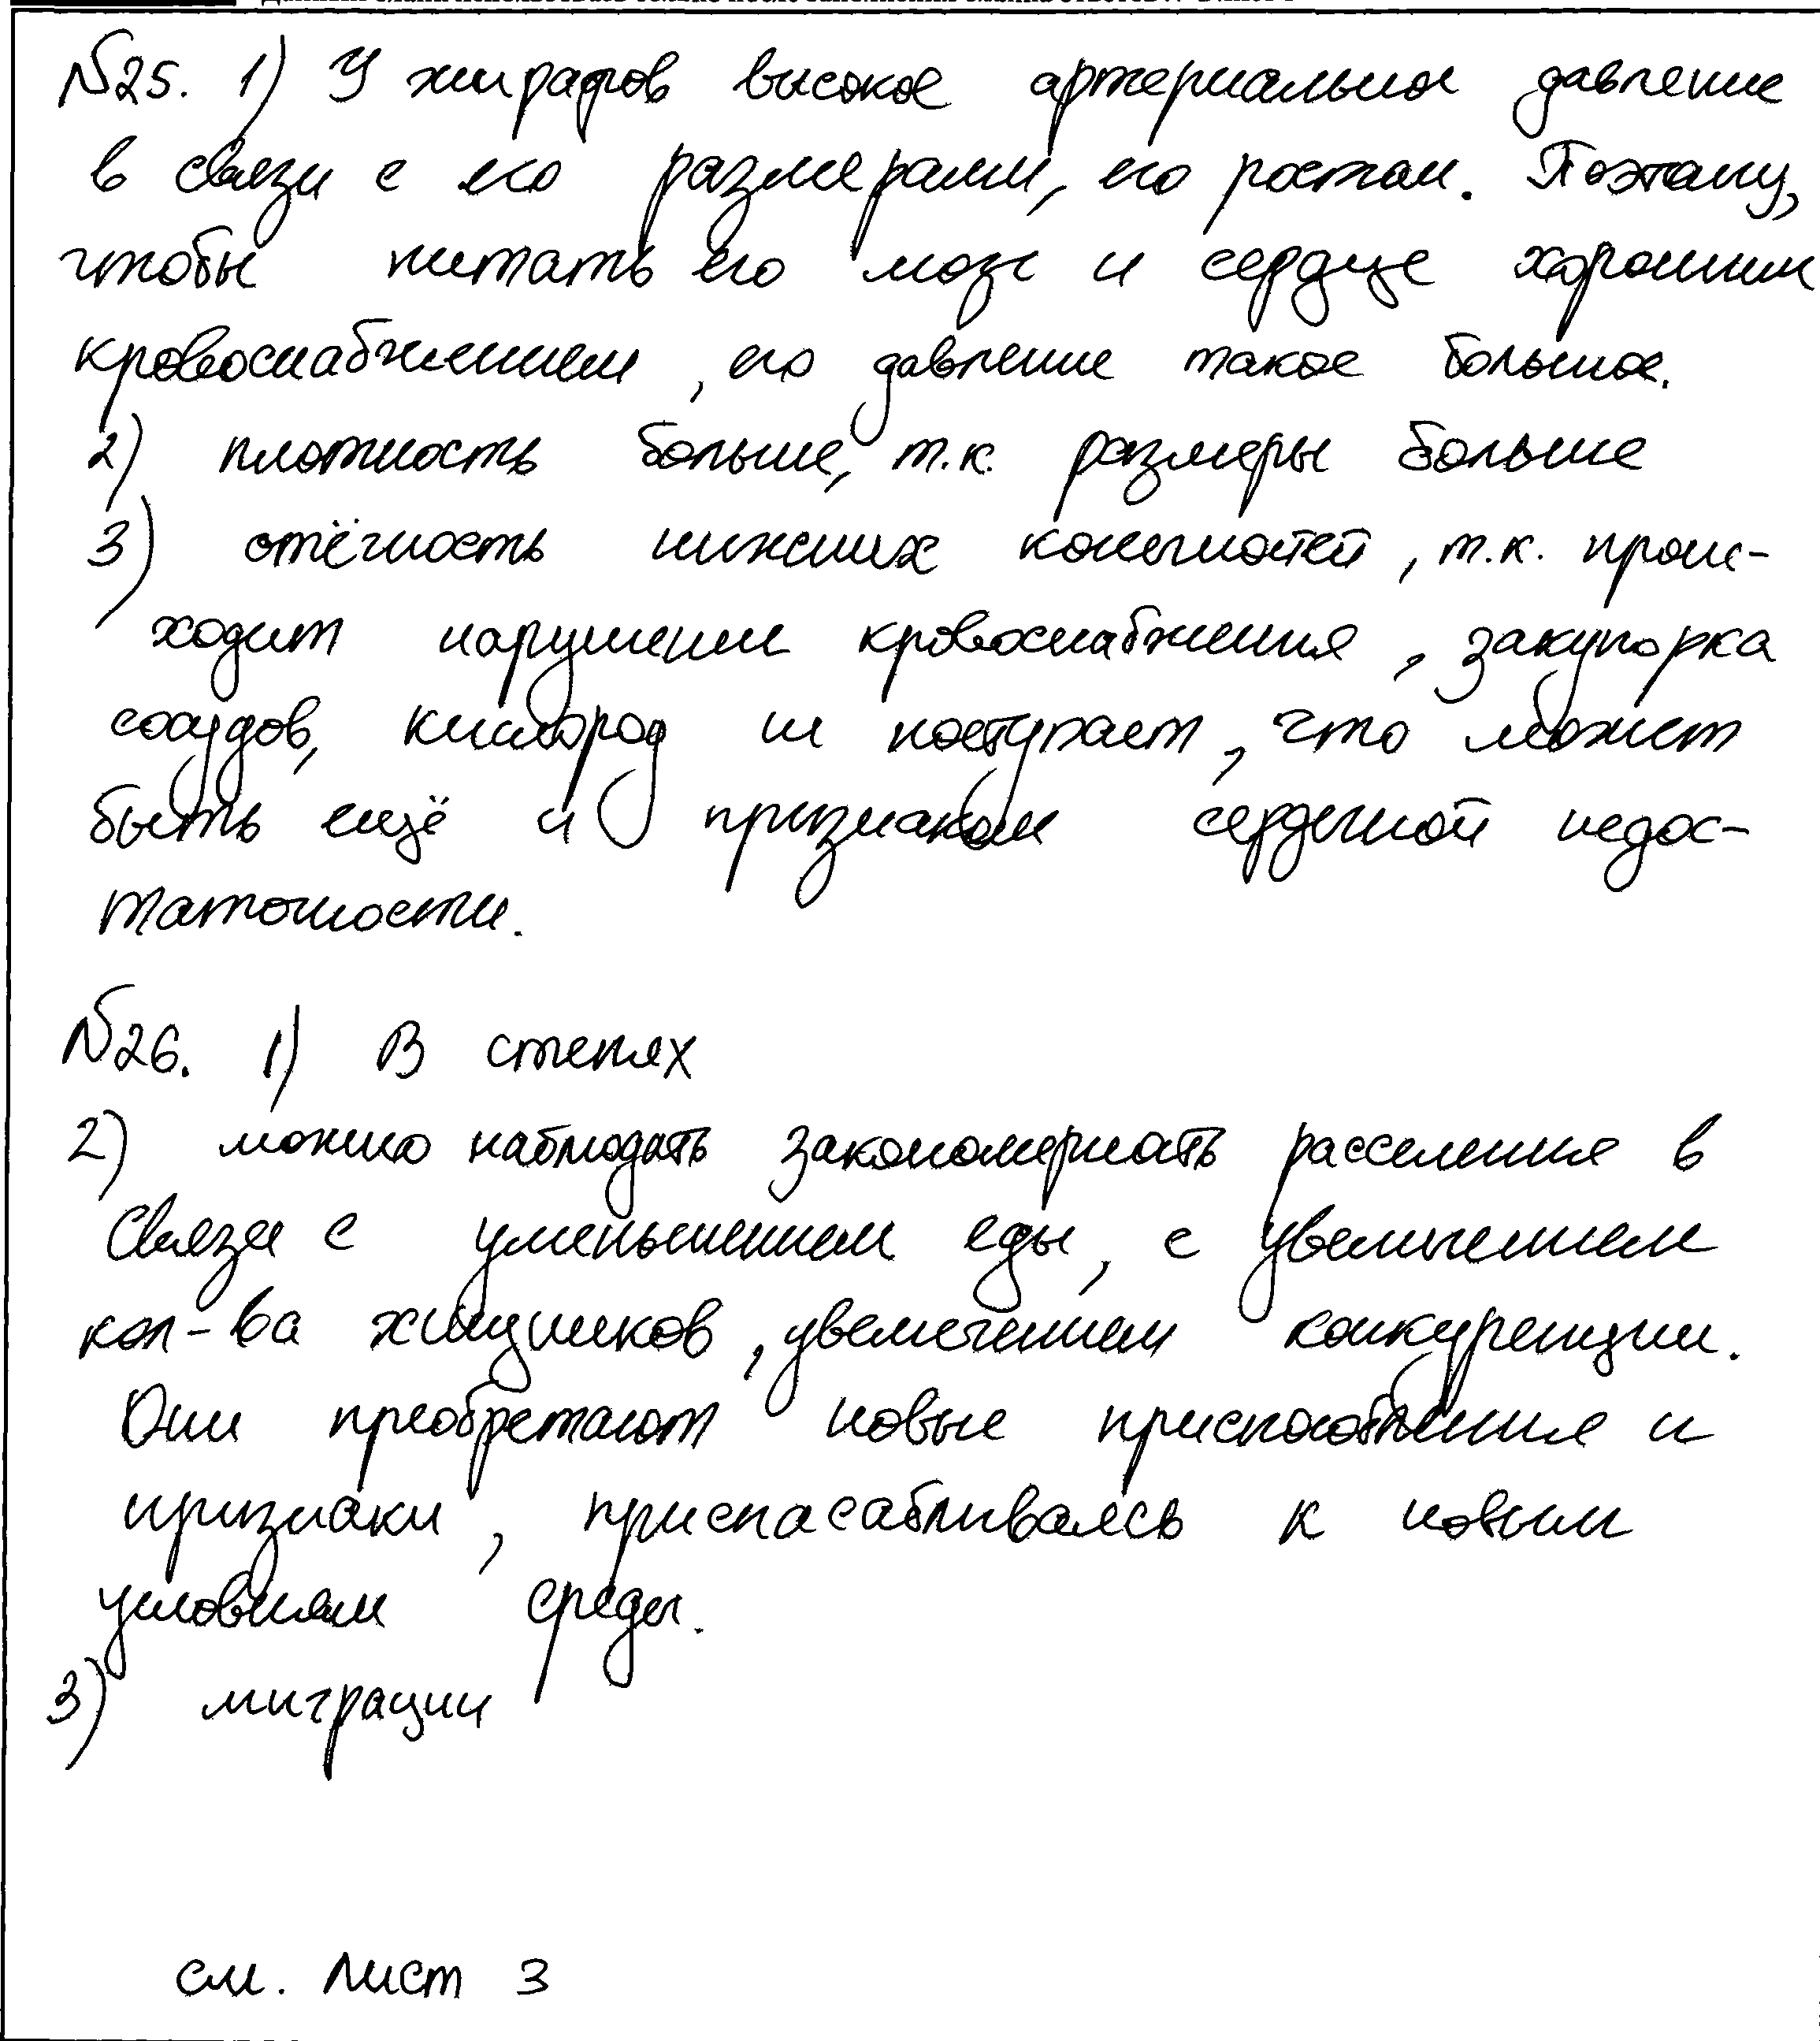 №25. 1) У жирафов высокое артериальное давление
в связи с его размерами, его ростом. Поэтому,
чтобы питать его мозг и сердце хорошим
кровоснабжением, его давление такое большое.
2) плотность больше, т.к. размеры больше
3) отёчность нижних конечностей, т.к. проис-
ходит нарушение кровоснабжения, закупорка
сосудов, кислород не поступает, что может
быть ещё и признаком сердечной недос-
таточности.
№26. 1) В степях
2) можно наблюдать закономерность расселения в
связи с уменьшением еды, с увеличением
кол-ва хищников, увеличением конкуренции.
Они приобретают новые приспособления и
признаки, приспосабливаясь к новым
условиям среды.
3) миграции
см. лист 3